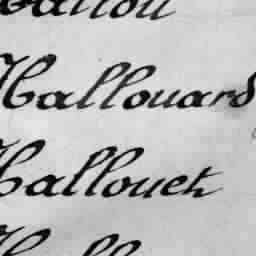 Hallou
Hallouard
Hallouch